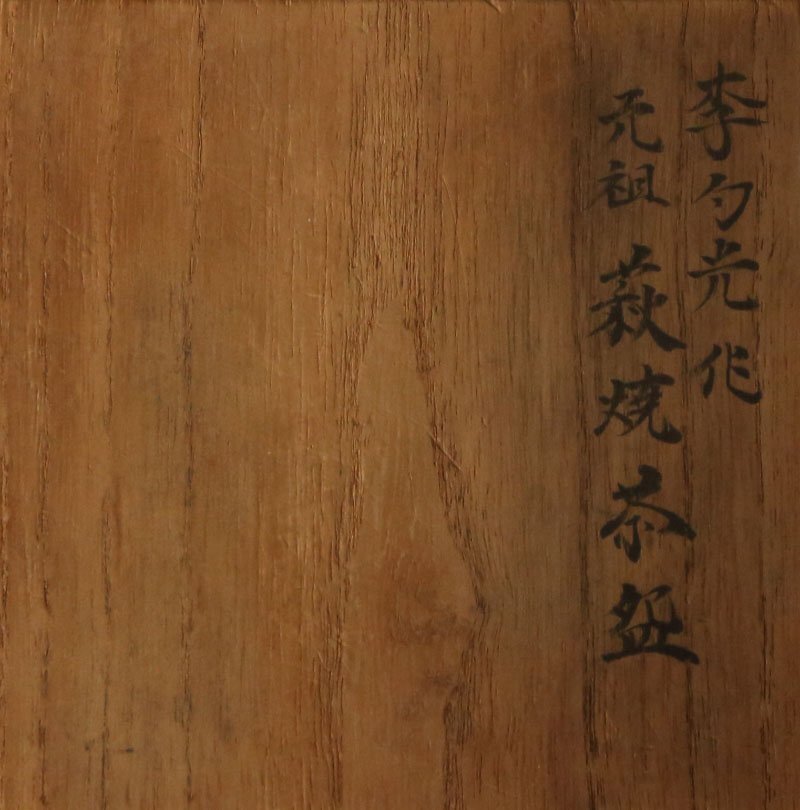 李勺光作
元祖萩焼茶盌